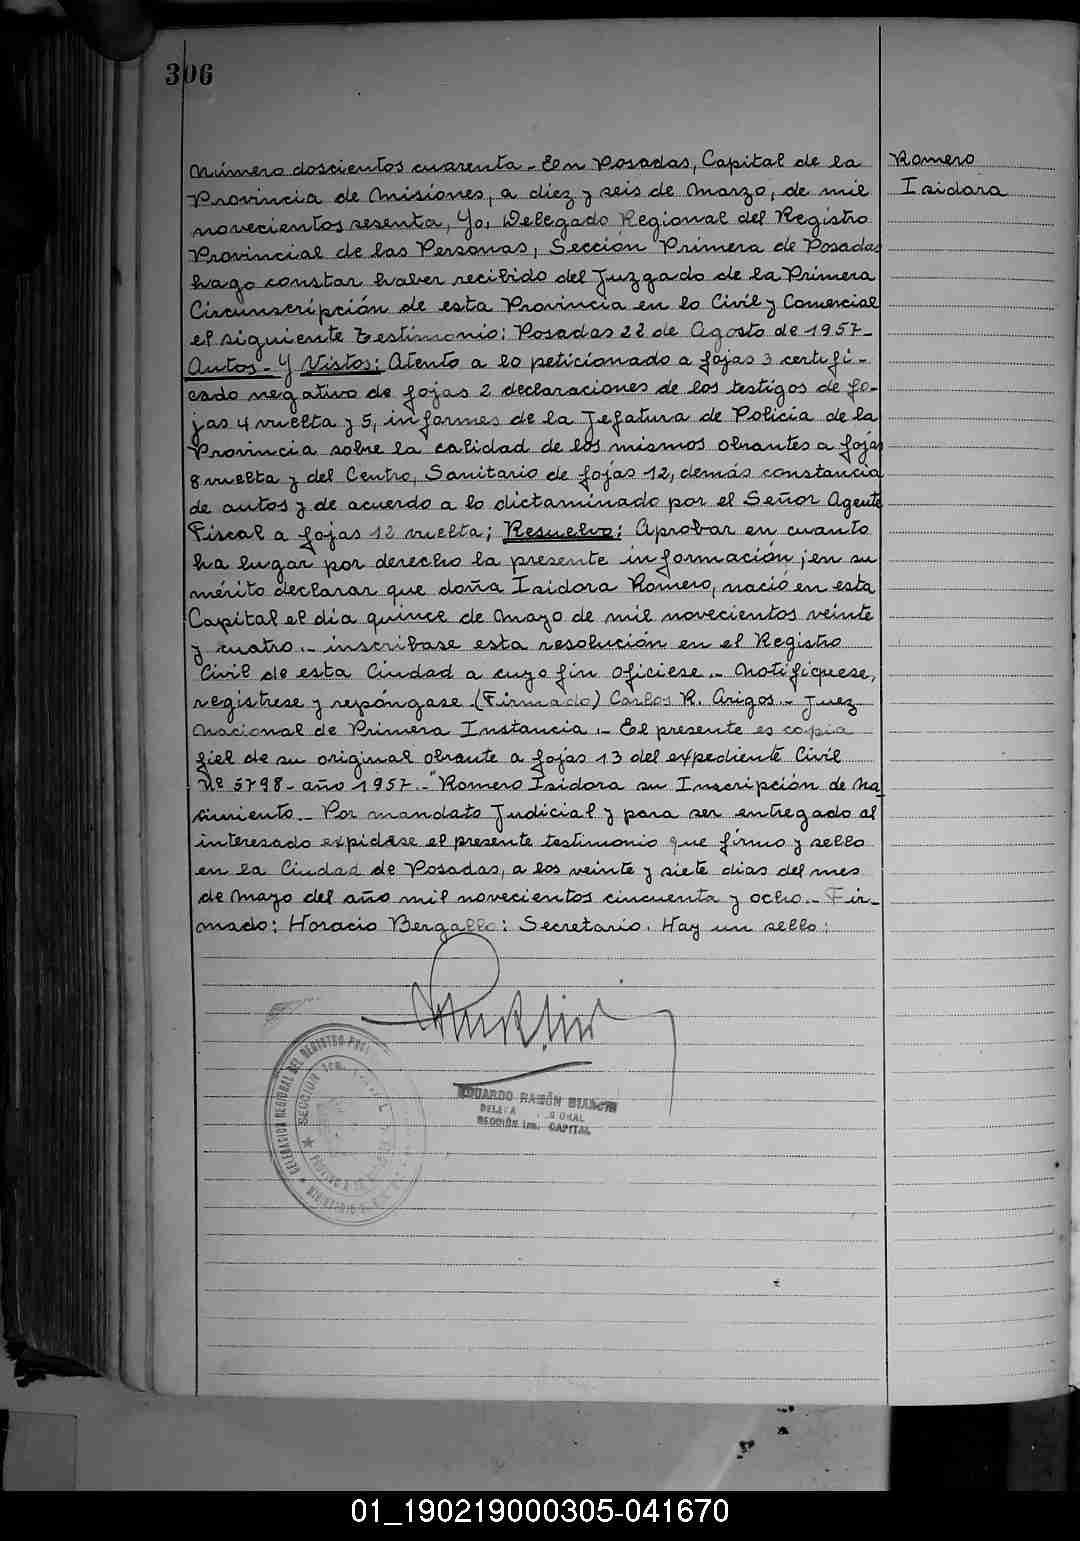 306
Romero
Isidora
Número doscientos cuarenta - En Posadas, Capital de la
Provincia de Misiones, a diez y seis de Marzo, de mil
novecientos sesenta, Yo, Delegado Regional del Registro
Provincial de las Personas, Sección Primera de Posadas
hago constar haber recibido del Juzgado de la Primera
Circunscripción de esta Provincia en lo Civil y Comercial
el siguiente testimonio: Posadas 22 de Agosto de 1957-
Autos- Y Vistos: Atento a lo peticionado a fojas 3 certifi-
cado negativo de fojas 2 declaraciones de los testigos de fo-
jas 4 vuelta y 5, informes de la Jefatura de Policia de la
Provincia sobre la calidad de los mismos obrantes a fojas
8 vuelta y del Centro, Sanitario de fojas 12, demás constancia
de autos y de acuerdo a lo dictaminado por el Señor Agente
Fiscal a fojas 12 vuelta; Resuelvo: Aprobar en cuanto
ha lugar por derecho la presente información; en su
mérito declarar que doña Isidora Romero, nació en esta
Capital el día quince de Mayo de mil novecientos veinte
y cuatro.- inscribase esta resolución en el Registro
Civil de esta Ciudad a cuyo fin oficiese.- Notifíquese,
registrese y repóngase (Firmado) Carlos R. Arigos.- Juez
Nacional de Primera Instancia.- El presente es copia
fiel de su original obrante a fojas 13 del expediente Civil
Nº 5798- año 1957.- "Romero Isidora su Inscripción de Na-
cimiento.- Por mandato Judicial y para ser entregado al
interesado expídese el presente testimonio que firmo y sello
en la Ciudad de Posadas, a los veinte y siete dias del mes
de Mayo del año mil novecientos cincuenta y ocho.- Fir-
mado: Horacio Bergallo: Secretario. Hay un sello:
DELEGACION REGIONAL DEL REGISTRO
SECCION
EDUARDO RAMÓN
SECCIÓN 1ra. CAPITAL
01_190219000305-041670